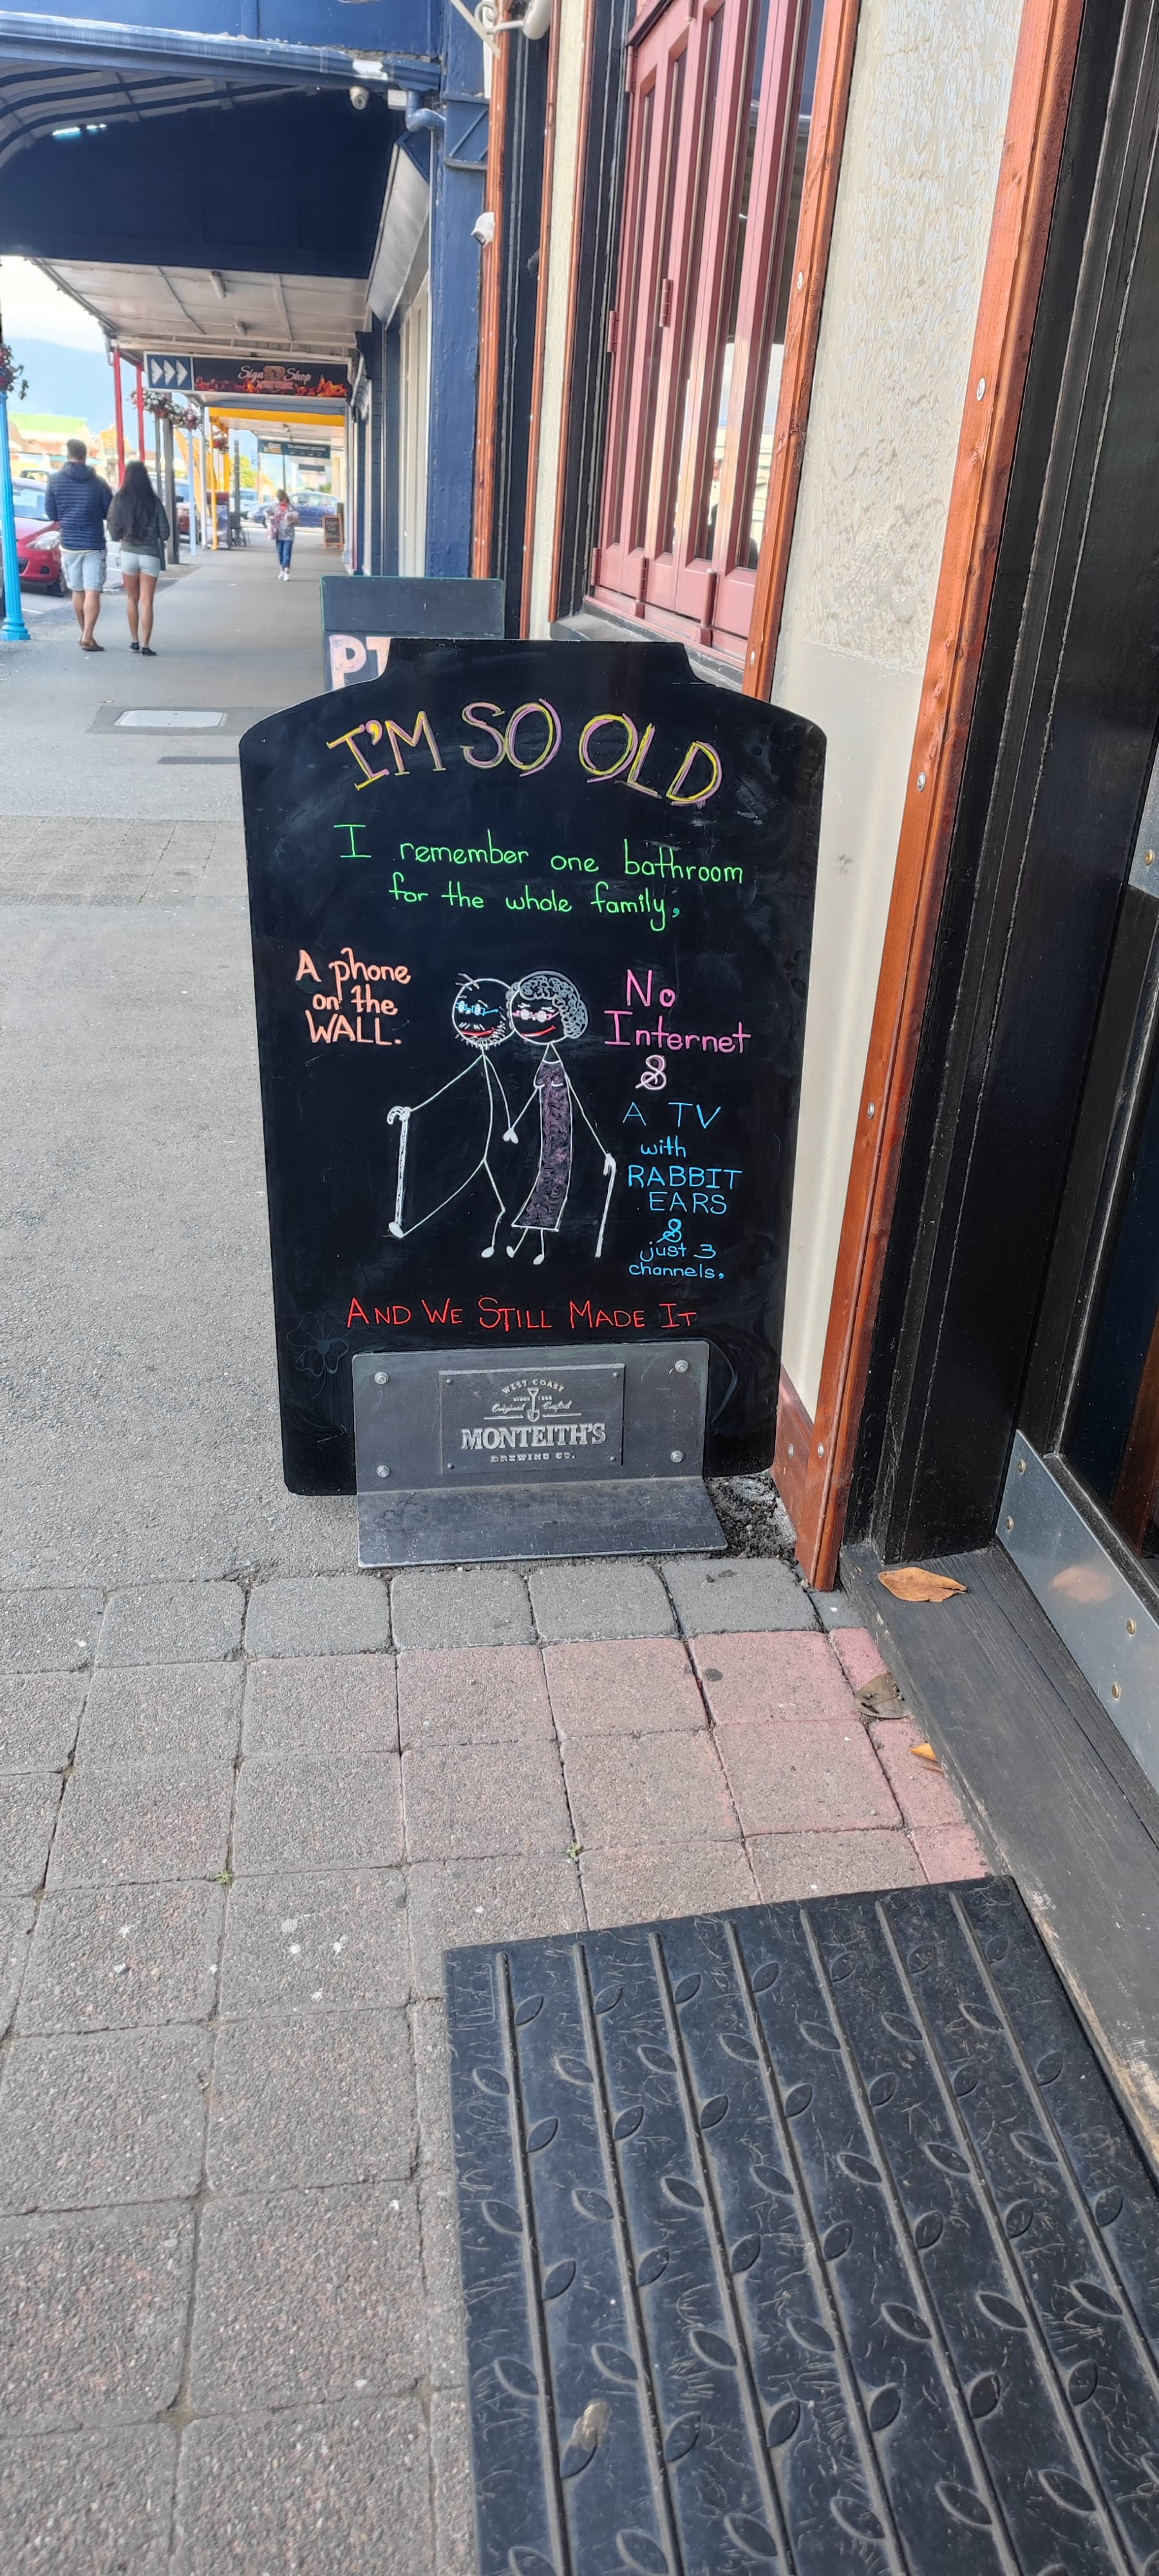 Sign Shop
PI
I'M SO OLD
I remember one bathroom
for the whole family,
A phone
on the
WALL.
No
Internet
&
A TV
with
RABBIT
EARS
&
just 3
channels,
AND WE STILL MADE IT
WEST COAST
SINCE 1868
Original Crafted
MONTEITH'S
BREWING CO.